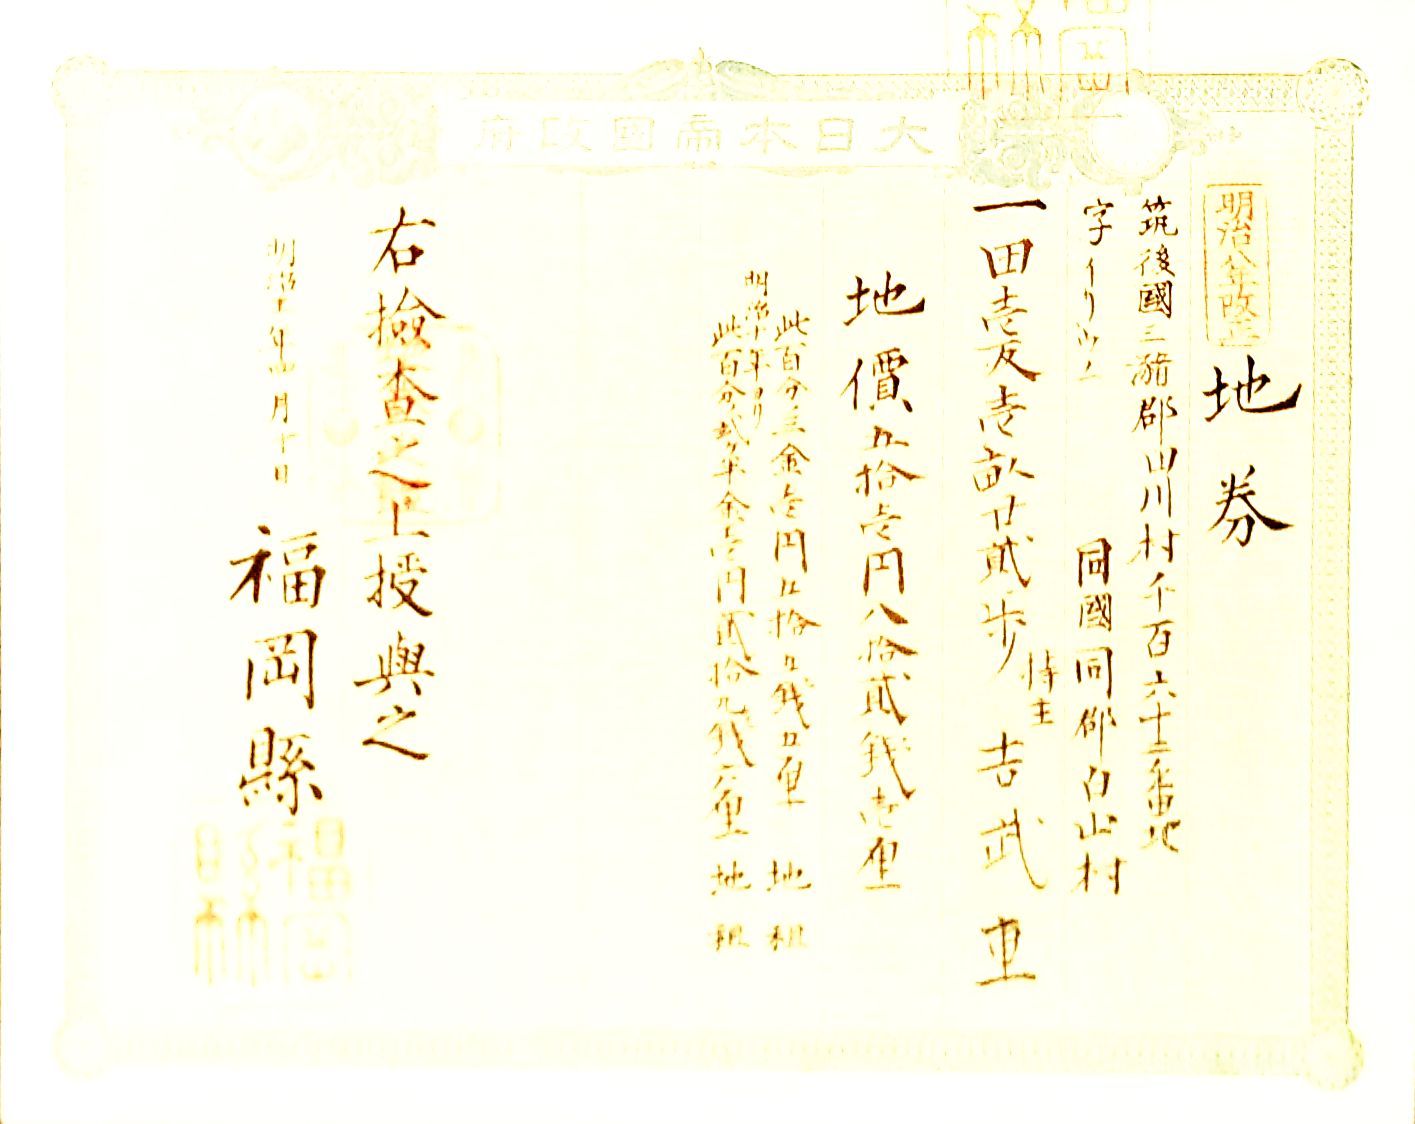 大日本帝國政府
明治八年改正
地券
筑後國三潴郡山川村千百六十二番
字イリ
同國同郡白山村
一田壱反壱畝廿貳歩
持主
吉武
地價五拾壱円八拾貳銭壱厘
此百分ノ三金壱円五拾五銭五厘 地租
明治十年ヨリ
此百分ノ貳ケ半金壱円貳拾九銭六厘 地租
右檢査之上授與之
明治十年四月十日
福岡縣